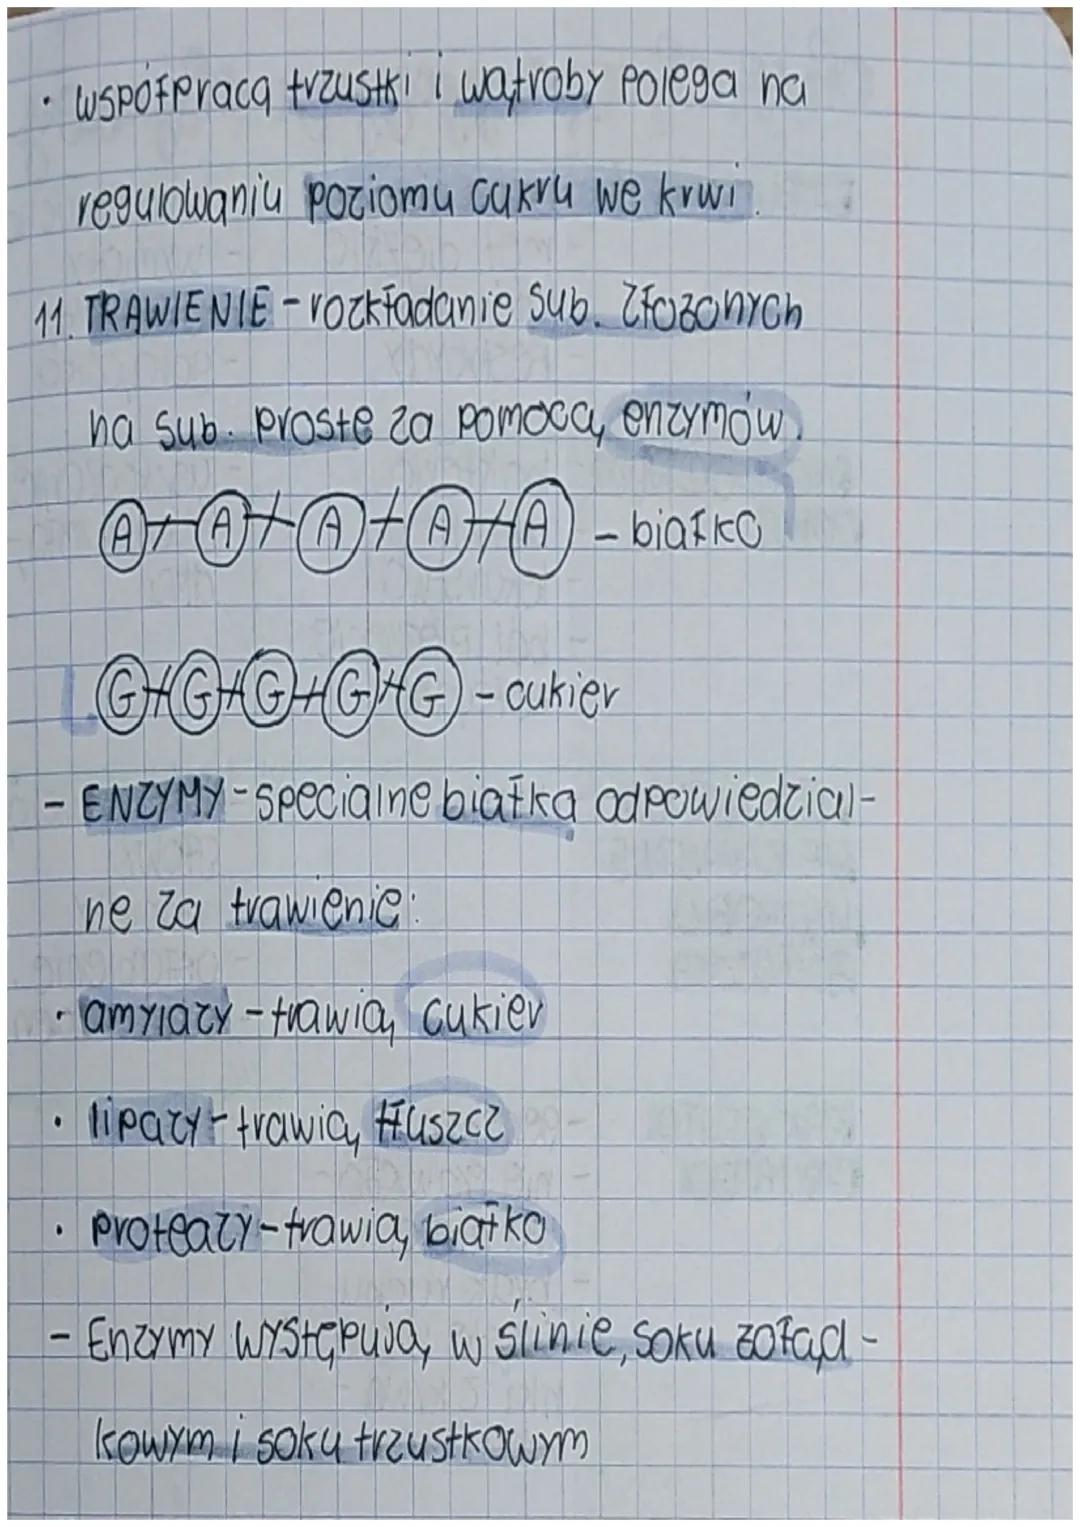 • współpraca trzustki i wątroby polega na
regulowaniu poziomu cukru we krwi.
11. TRAWIENIE - rozkładanie sub. złożonych
na sub. proste za pomocą enzymów.
A + A + A + A + A - białko
G + G + G + G + G - cukier
- ENZYMY - specjalne białka odpowiedzial-
ne za trawienie:
• amylazy - trawią cukier
• lipazy - trawią tłuszcz
• proteazy - trawią białko
- Enzymy występują w ślinie, soku żołąd-
kowym i soku trzustkowym